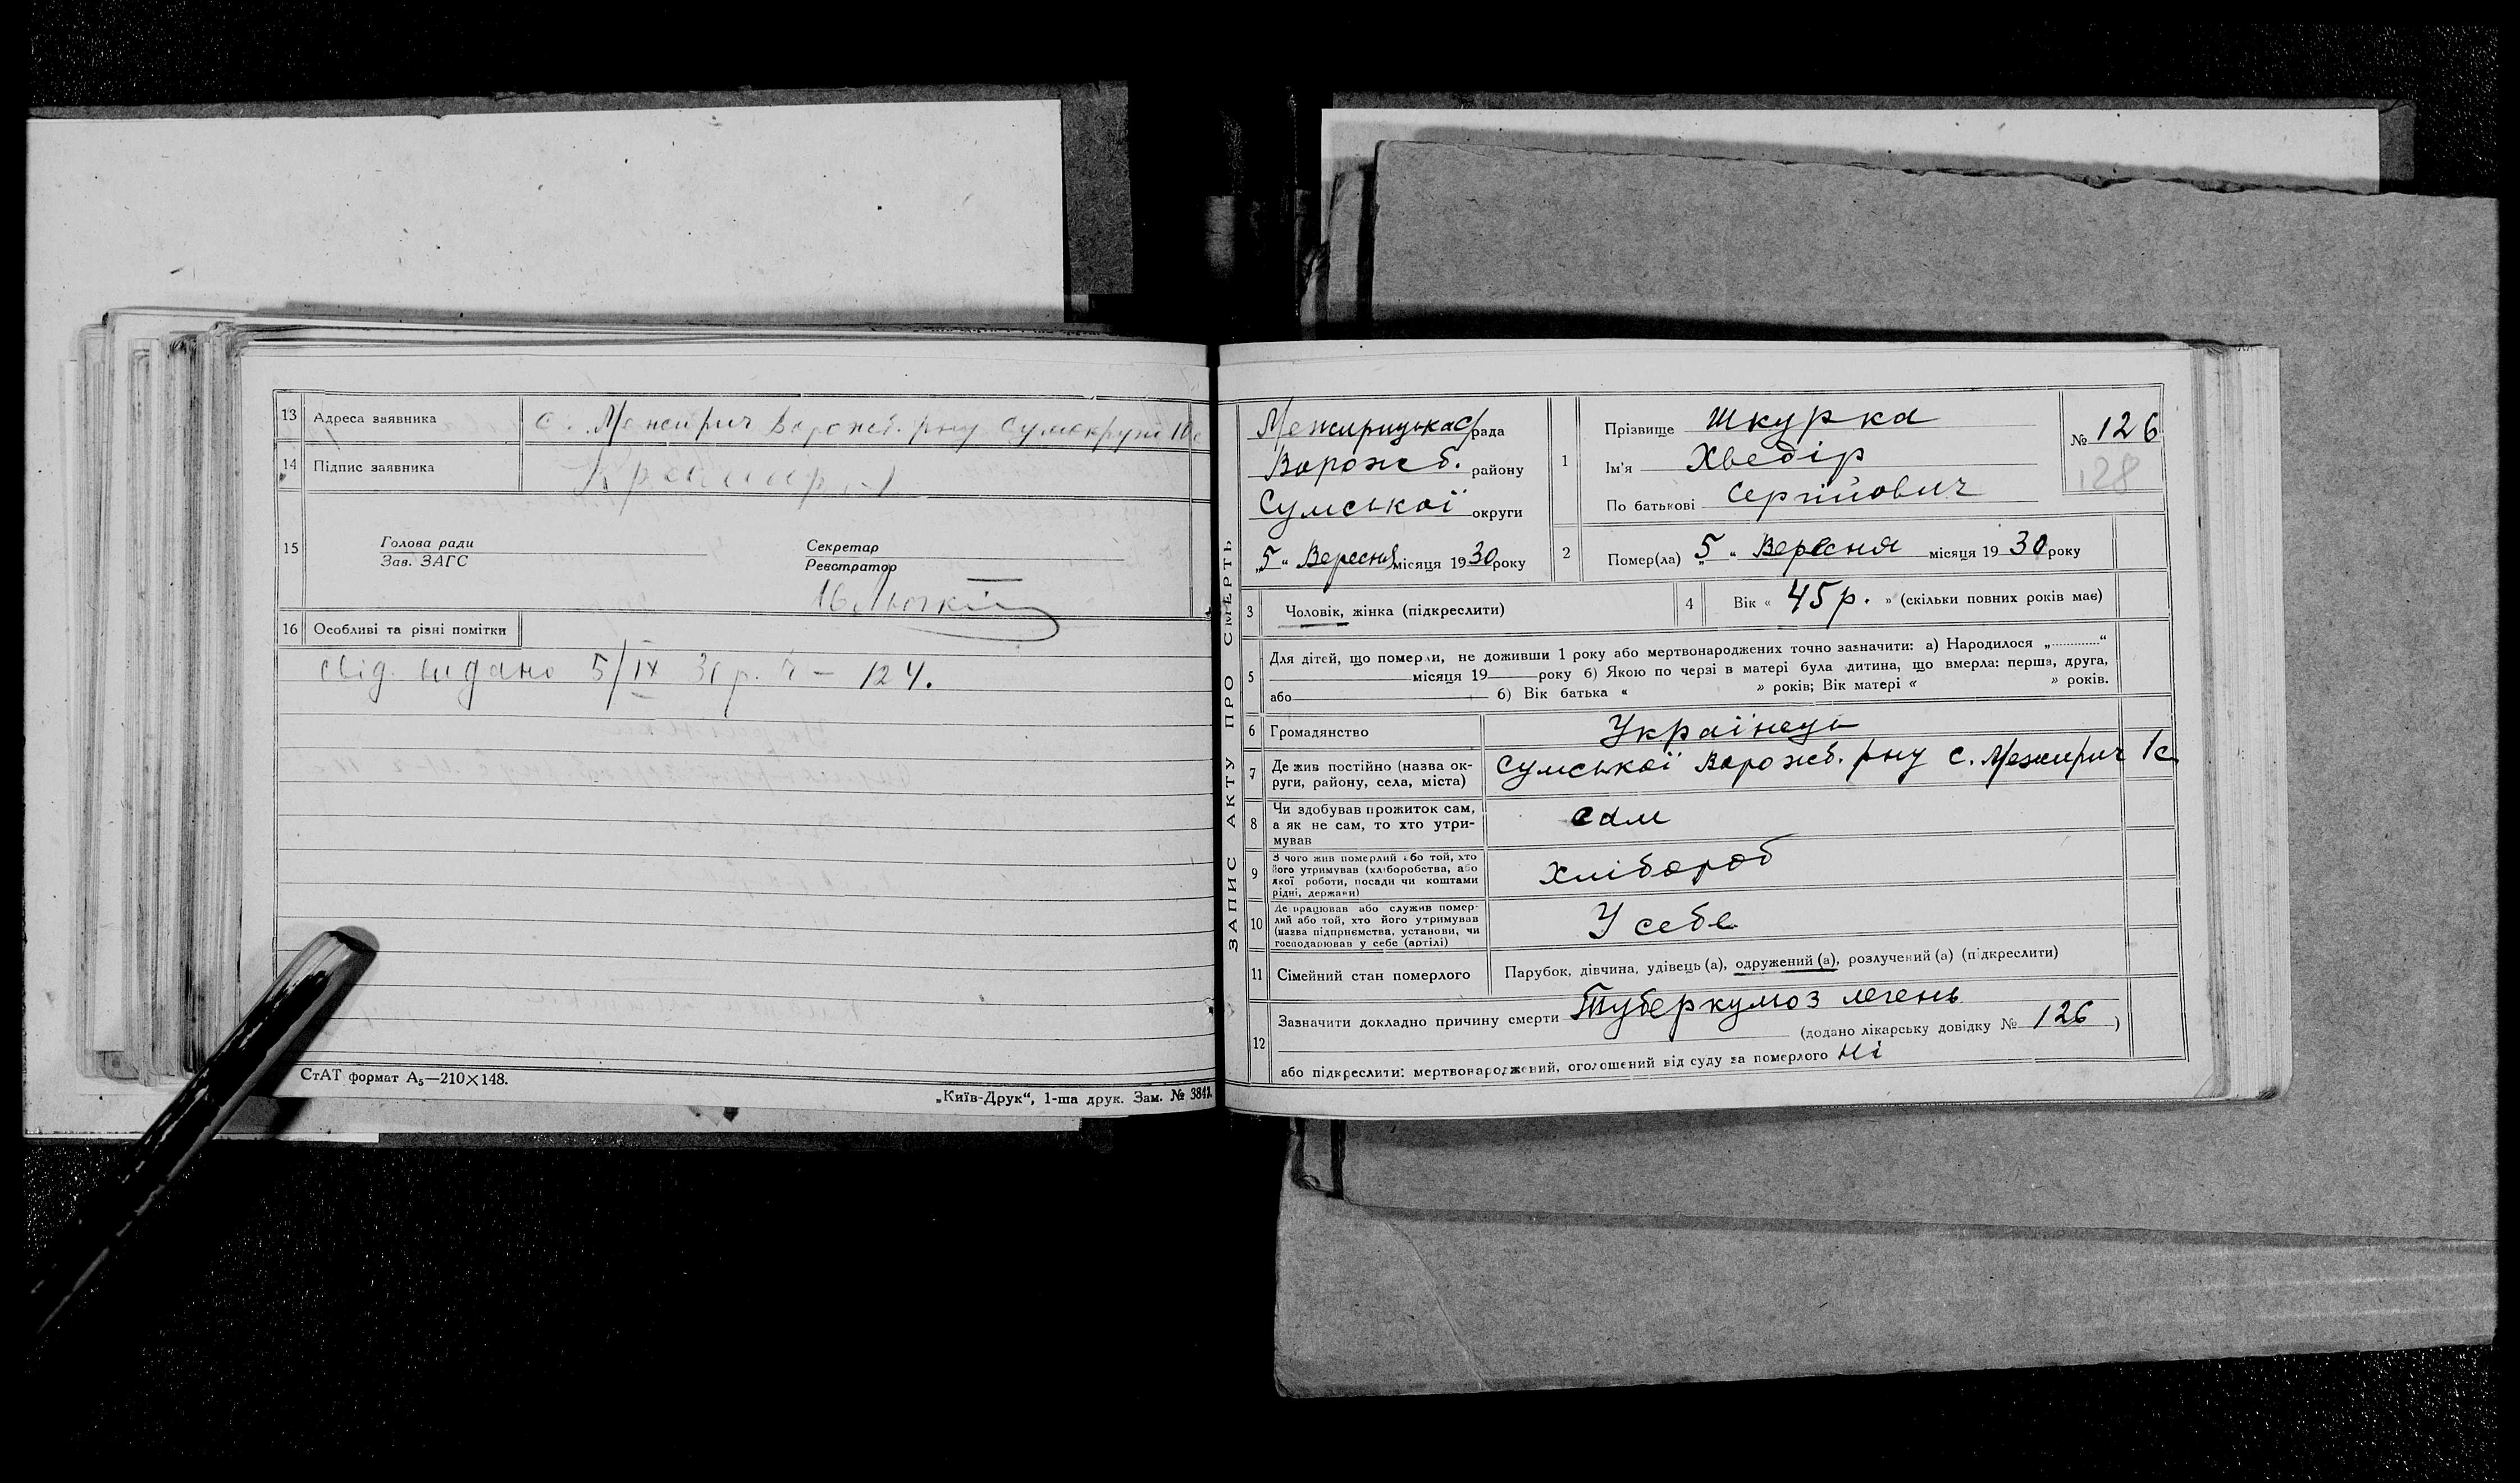 13 Адреса заявника с. Межирич Ворожб. рну Сумокруги 1с
14 Підпис заявника
15 Голова ради
Зав. ЗАГС
Секретар
Реєстратор
16 Особливі та різні помітки
свід. видано 5/IX 30 р. Ч – 124.
СтАТ формат А₅—210×148.
„Київ-Друк“, 1-ша друк. Зам. №
ЗАПИС АКТУ ПРО СМЕРТЬ
Межирицька с/рада
Ворожб. району
Сумської округи
„5“ Вересня місяця 1930 року
1 Прізвище Шкурка
Ім'я Хведір
По батькові Сергійович
№ 126
128
2 Помер(ла) „5“ Вересня місяця 1930 року
3 Чоловік, жінка (підкреслити)
4 Вік « 45 р. » (скільки повних років має)
5 Для дітей, що померли, не доживши 1 року або мертвонароджених точно зазначити: а) Народилося „............“
місяця 19 року б) Якою по черзі в матері була дитина, що вмерла: перша, друга,
або б) Вік батька « » років; Вік матері « » років.
6 Громадянство Українець
7 Де жив постійно (назва ок-
руги, району, села, міста) Сумської Ворожб. рну с. Межирич 1с
8 Чи здобував прожиток сам,
а як не сам, то хто утри-
мував сам
9 З чого жив померлий або той, хто
його утримував (хліборобства, або
якої роботи, посади чи коштами
рідні, держави) Хлібороб
10 Де працював або служив помер-
лий або той, хто його утримував
(назва підприємства, установи, чи
господарював у себе (артілі) У себе
11 Сімейний стан померлого Парубок, дівчина, удівець (а), одружений (а), розлучений (а) (підкреслити)
12 Зазначити докладно причину смерти Туберкульоз легень
(додано лікарську довідку № 126 )
або підкреслити: мертвонароджений, оголошений від суду за померлого Ні